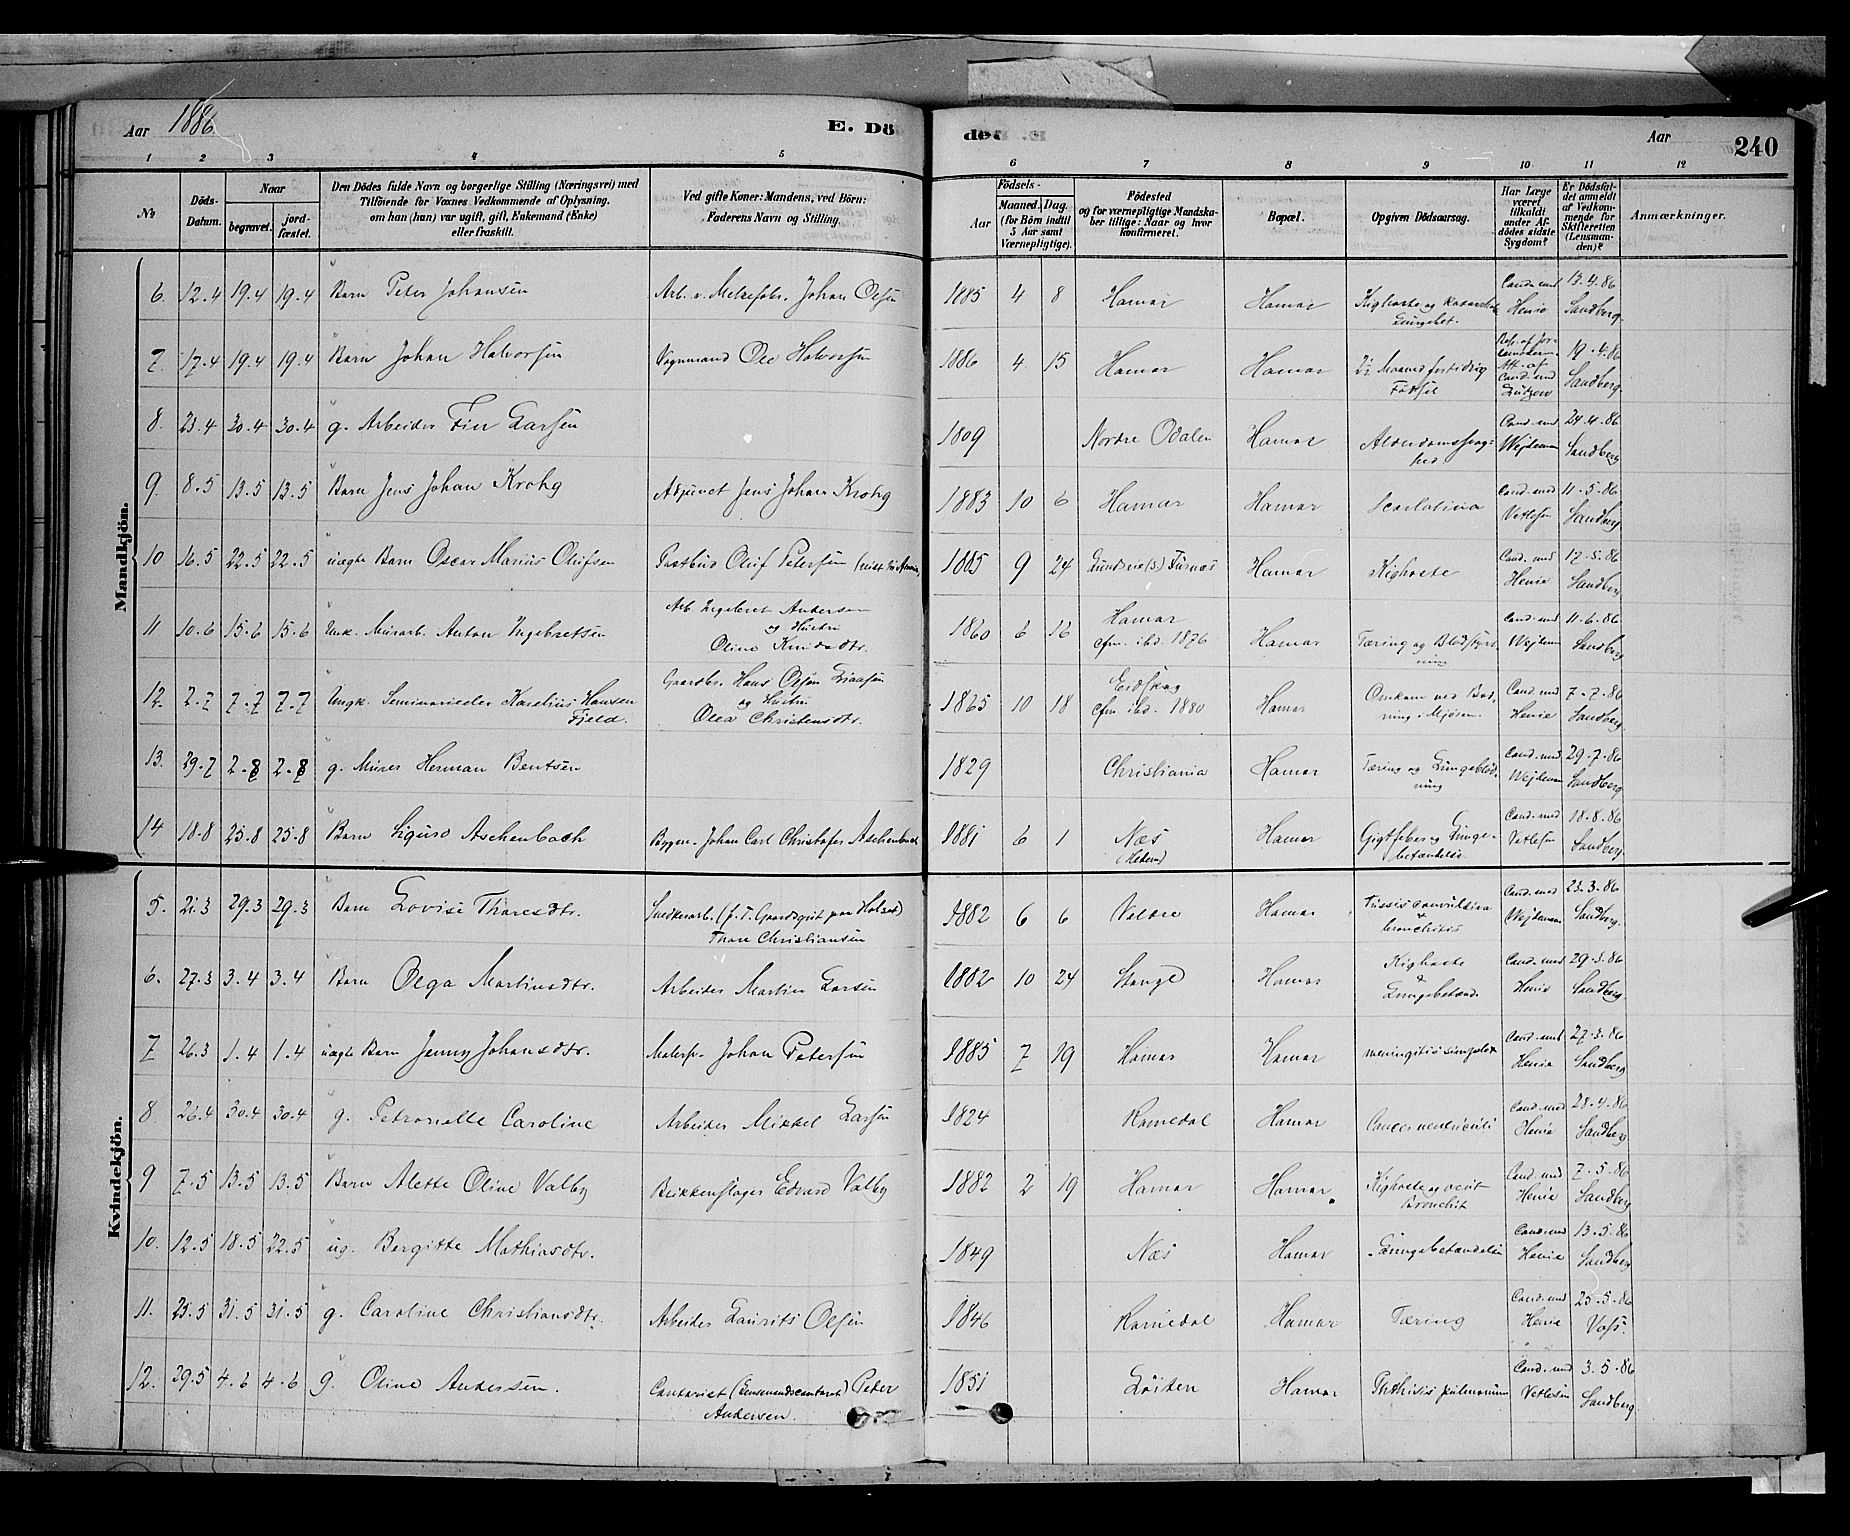 Aar 1886 E. Dö de. Aar 240
1 2 3 4 5 6 7 8 9 10 11 12
№ Döds-Datum. Naar begravet. jordfæstet. Den Dödes fulde Navn og borgerlige Stilling (Næringsvei) med Tilföiende for Voxnes Vedkommende af Oplysning, om han (hun) var ugift, gift, Enkemand (Enke) eller fraskilt. Ved gifte Koner: Mandens, ved Börn: Faderens Navn og Stilling. Födsels- Aar Maaned. Dag. (for Börn indtil 5 Aar samt Værnepligtige). Födested og for værnepligtige Mandskaber tillige: Naar og hvor konfirmeret. Bopæl. Opgiven Dödsaarsag. Har Læge været tilkaldt under Afdödes sidste Sygdom? Er Dödsfaldet anmeldt af Vedkommende for Skifteretten (Lensmanden)? Anmærkninger.
Mandkjön.
6. 12.4 19.4 19.4 Barn Peter Johansen Arb. v. Johan Olsen 1885 4 8 Hamar Hamar Kighoste og Lungebet. Cand. med Henie 13.4.86 Sandberg.
7. 17.4 19.4 19.4 Barn Johan Halvorsen Vognmand Ole Halvorsen 1886 4 15 Hamar Hamar Maaned fortidlig Födsel Att. af Cand. med Lützow 19.4.86 Sandberg.
8. 23.4 30.4 30.4 g. Arbeider Larsen 1809 Nordre Odalen Hamar Alderdomssvaghed Cand. med Wejdeman 24.4.86 Sandberg
9. 8.5 13.5 13.5 Barn Jens Johan Krohg Adjunct Jens Johan Krohg 1883 10 6 Hamar Hamar Scarlatina Cand. med Vetlesen 11.5.86 Sandberg
10 16.5 22.5 22.5 uægte Barn Oscar Marius Olufsen Postbud Oluf Petersen 1885 9 24 Furnæs Hamar Kighoste Cand. med Henie 17.5.86 Sandberg
11 10.6 15.6 15.6 Ungk. Murarb. Anton Ingebretsen Arb. Ingebret Andersen og Hustru Oline Knudsdtr. 1860 6 16 Hamar cfm. ibd. 1876 Hamar Tæring og Blodstyrtning Cand. med Wejdeman 11.6.86 Sandberg
12. 2.7 7.7 7.7 Ungk. Seminarieelev Karelius Hansen Fjeld. Gaardbr. Hans Olsen og Hustru Olea Christensdtr. 1865 10 18 Eidskog Cfm ibd. 1880 Hamar Omkom ved Badning i Mjösen. Cand. med Henie 7.7.86 Sandberg
13. 29.7 2.8 2.8 g. Murer Herman Bentsen 1829 Christiania Hamar Tæring og Lungeblödning Cand. med Wejdeman 29.7.86 Sandberg
14 18.8 25.8 25.8 Barn Sigurd Aschenbach Johan Carl Christofer Aschenbach 1881 6 1 Næs (Hedem) Hamar Gigtfeber og Lungebetændelse. Cand. med Vetlesen 18.8.86 Sandberg
Kvindekjön.
5. 21.3 29.3 29.3 Barn Lovise Thoresdtr. Snedkerarb. (f. T. Gaardsgut paa Holset) Thore Christiansen 1882 6 6 Veldre Hamar Tussis convulsiva & bronchitis Cand. med Wejdeman 23.3.86 Sandberg.
6. 27.3 3.4 3.4 Barn Olga Martinsdtr. Arbeider Martin Larsen 1882 10 24 Stange Hamar Kighoste & Lungebetænd. Cand. med Henie 29.3.86 Sandberg.
7 26.3 1.4 1.4 uægte Barn Jenny Johansdtr. Malersv. Johan Petersen 1885 7 19 Hamar Hamar meningitis simplex Cand. med Henie 27.3.86 Sandberg
8 26.4 30.4 30.4 g. Petronelle Caroline Arbeider Mikkel Larsen 1824 Romedal Hamar Cancer ventriculi Cand. med Henie 28.4.86 Sandberg
9 7.5 13.5 13.5 Barn Alette Oline Valby Blikkenslager Edvard Valby 1882 2 19 Hamar Hamar. Kighoste og acut Bronchit Cand. med Henie 7.5.86 Sandberg
10. 12.5 18.5 22.5 ug. Bergitte Mathiasdtr. 1849 Næs Hamar Lungebetændelse Cand. med Henie 13.5.86 Sandberg
11. 25.5 31.5 31.5 g. Caroline Christiansdtr. Arbeider Laurits Olsen 1846 Romedal Hamar Tæring Cand. med Henie 25.5.86 Voss.
12. 29.5 4.6 4.6 g. Oline Andersen. Contorist (Lensmandscontorist) Peter Andersen. 1851 Löiten Hamar Phthisis pulmonum Cand. med Vetlesen 3.5.86 Sandberg.